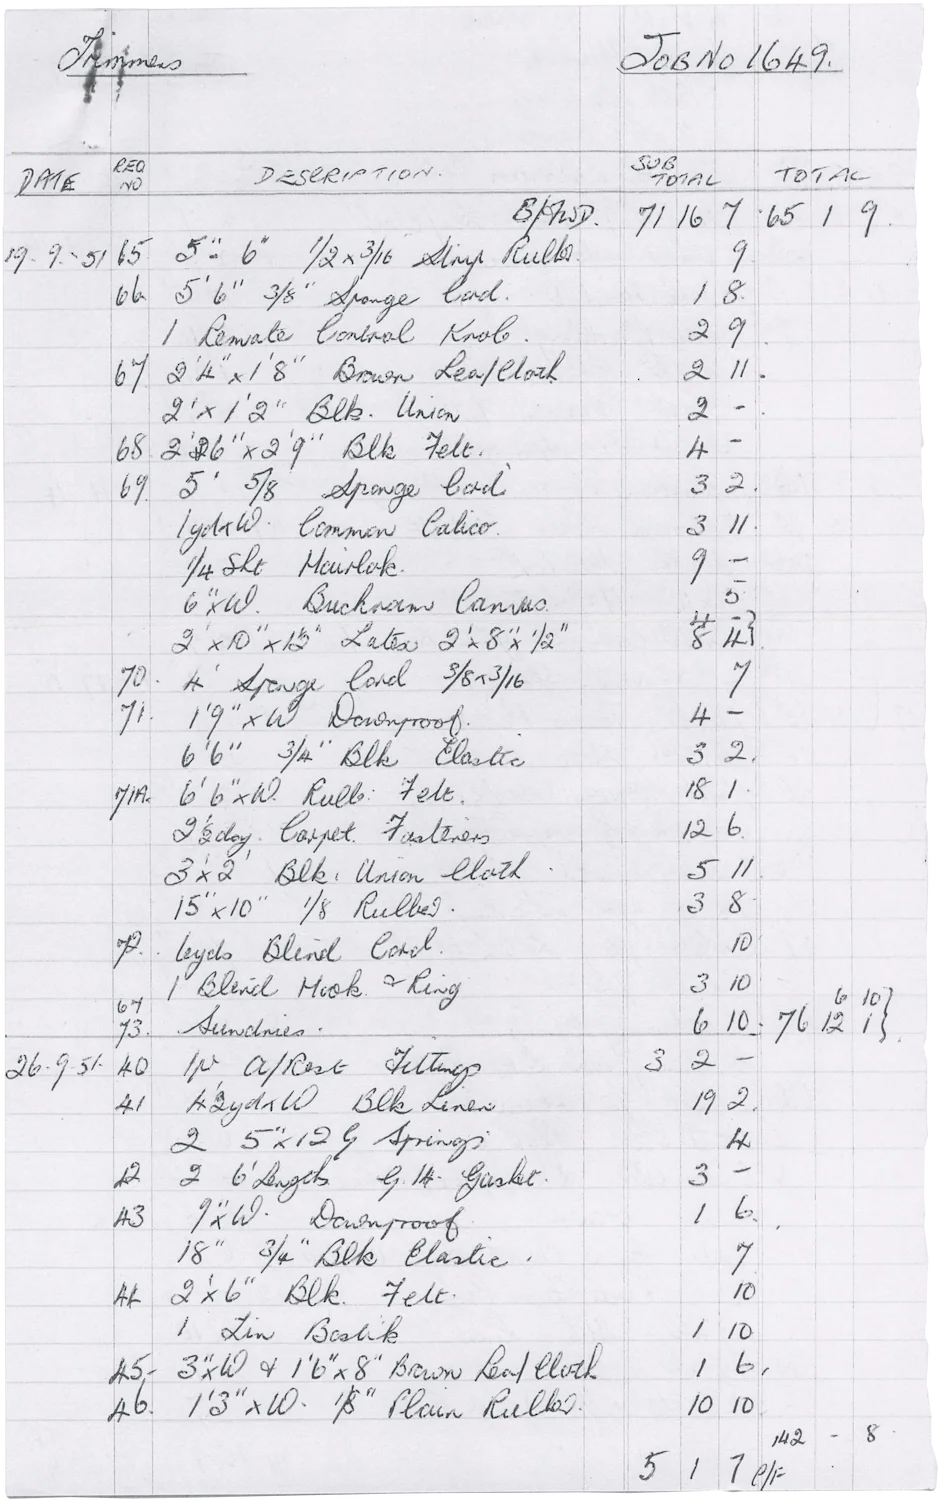 Trimmers JOB NO 1649.
DATE REQ NO DESCRIPTION. SUB TOTAL TOTAL
B/FWD. 71 16 7 65 1 9.
19-9-51 65 5" 6" 1/2 x 3/16 Strip Rubber. 9.
66 5'6" 3/8" Sponge Cord. 1 8.
1 Remote Control Knob. 2 9
67 2'4" x 1'8" Brown Lea/Cloth 2 11.
2' x 1'2" Blk. Union 2 -
68 2'6" x 2'9" Blk Felt. 4 -
69. 5' 5/8 Sponge Cord 3 2.
1yd x W. Common Calico. 3 11.
1/4 Sht Hairlok. 9 -
6" x W. Buckram Canvas. 5
4 -
2' x 10" x 1½" Latex 2' x 8" x 1/2" 8 4}
70. 4' Sponge Cord 3/8 x 3/16 7
71. 1'9" x W Downproof. 4 -
6'6" 3/4" Blk Elastic 3 2.
71A. 6'6" x W. Rubb: Felt. 18 1.
2½doz. Carpet Fasteners 12 6.
3' x 2' Blk. Union Cloth 5 11
15" x 10" 1/8 Rubber. 3 8
72. 6yds Blind Cord. 10
1 Blind Hook & Ring 3 10
67 6 10}
73. Sundries. 6 10. 76 12 1}.
26-9-51. 40 1pr A/Rest Fittings 3 2 -
41 4½yd x W Blk Linen 19 2.
2 5" x 12 G Springs 4
42 2 6' Lengths G.14. Gasket. 3 -
43 9" x W. Downproof 1 6.
18" 3/4" Blk Elastic. 7
44 2' x 6" Blk. Felt. 10
1 Tin Bostik 1 10
45- 3" x W & 1'6" x 8" Brown Lea/Cloth 1 6.
46. 1'3" x W. 1/8" Plain Rubber. 10 10
142 - 8
5 1 7 C/F